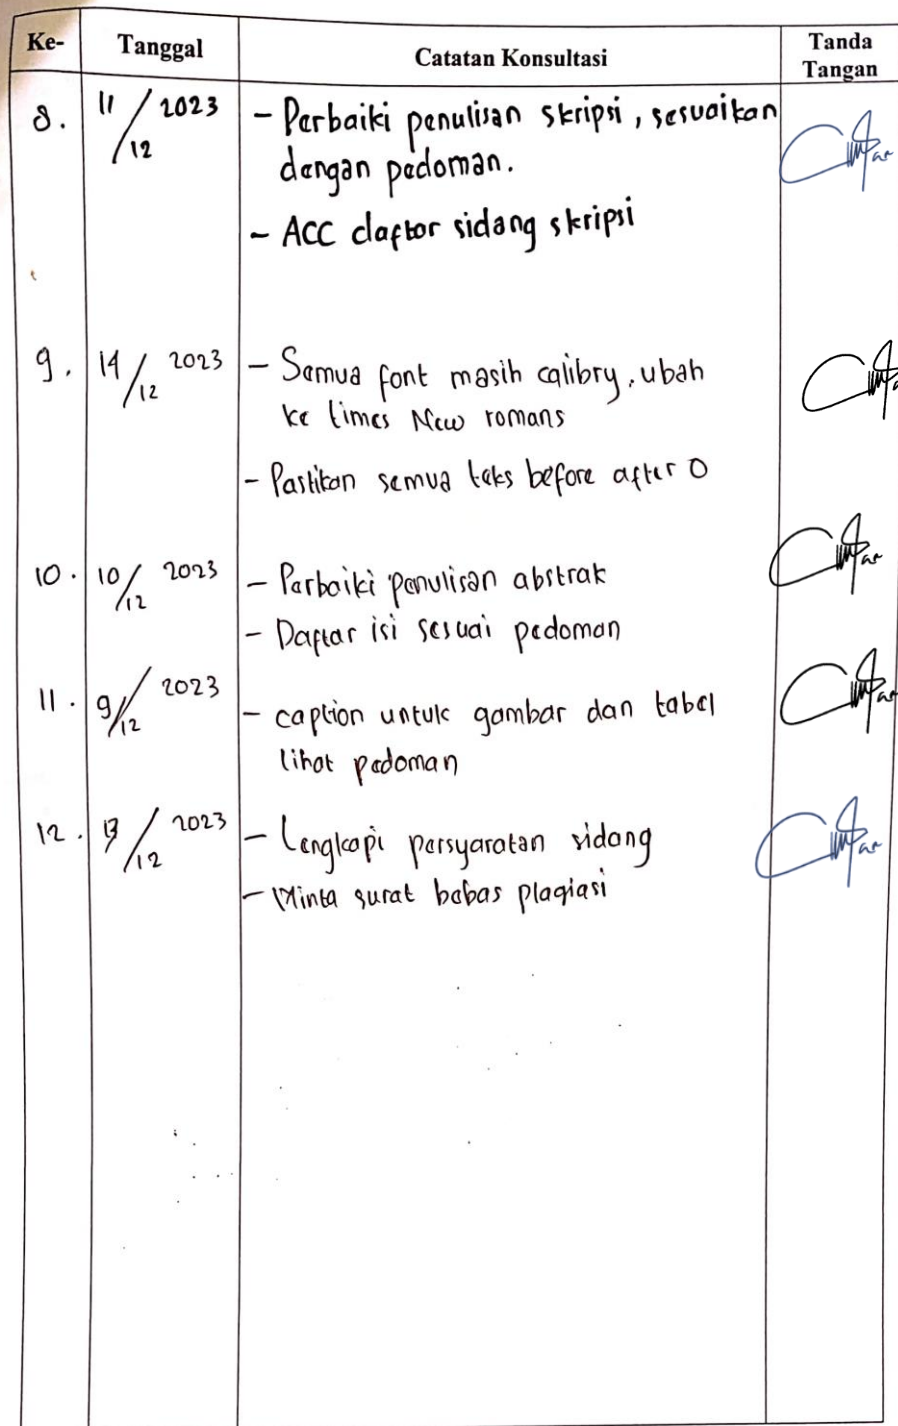 Ke- Tanggal Catatan Konsultasi Tanda Tangan
8. 11/12 2023 - Perbaiki penulisan skripsi, sesuaikan
dengan pedoman.
- ACC daftar sidang skripsi
9. 14/12 2023 - Semua font masih calibry, ubah
ke times New romans
- Pastikan semua teks before after 0
10. 10/12 2023 - Perbaiki penulisan abstrak
- Daftar isi sesuai pedoman
11. 9/12 2023 - caption untuk gambar dan tabel
lihat pedoman
12. 13/12 2023 - Lengkapi persyaratan sidang
- Minta surat bebas plagiasi